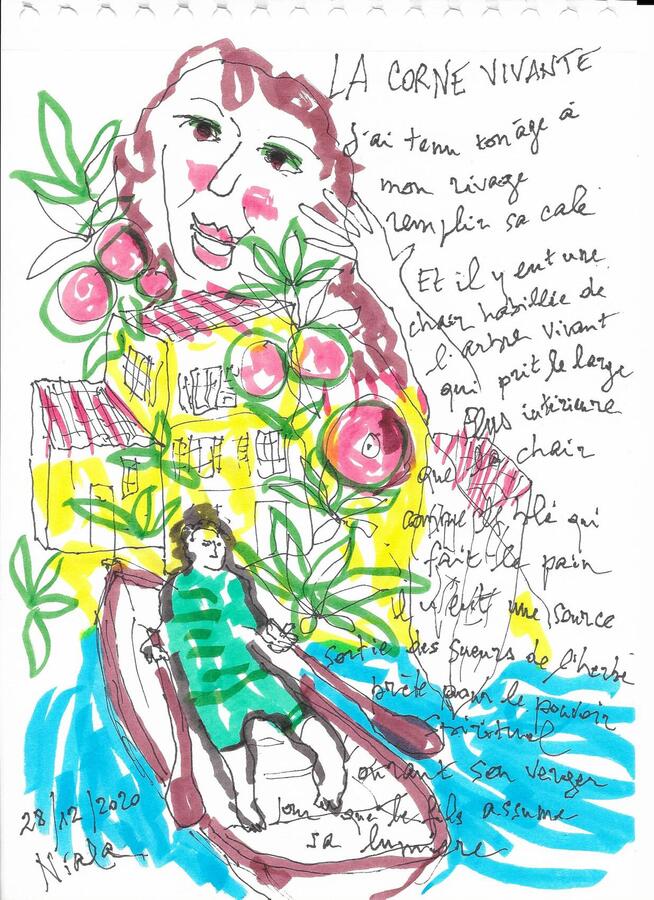 LA CORNE VIVANTE
J'ai tenu ton âge à
mon rivage
remplir sa cale
Et il y eut une
chair habillée de
l'arbre vivant
qui prit le large
Plus intérieure
que la chair
comme le blé qui
fait le pain
il y eut une source
sortie des sueurs de l'herbe
prête pour le pouvoir
spirituel
ouvrant son verger
pour que le fils assume
sa lumière
28/12/2020
Niala